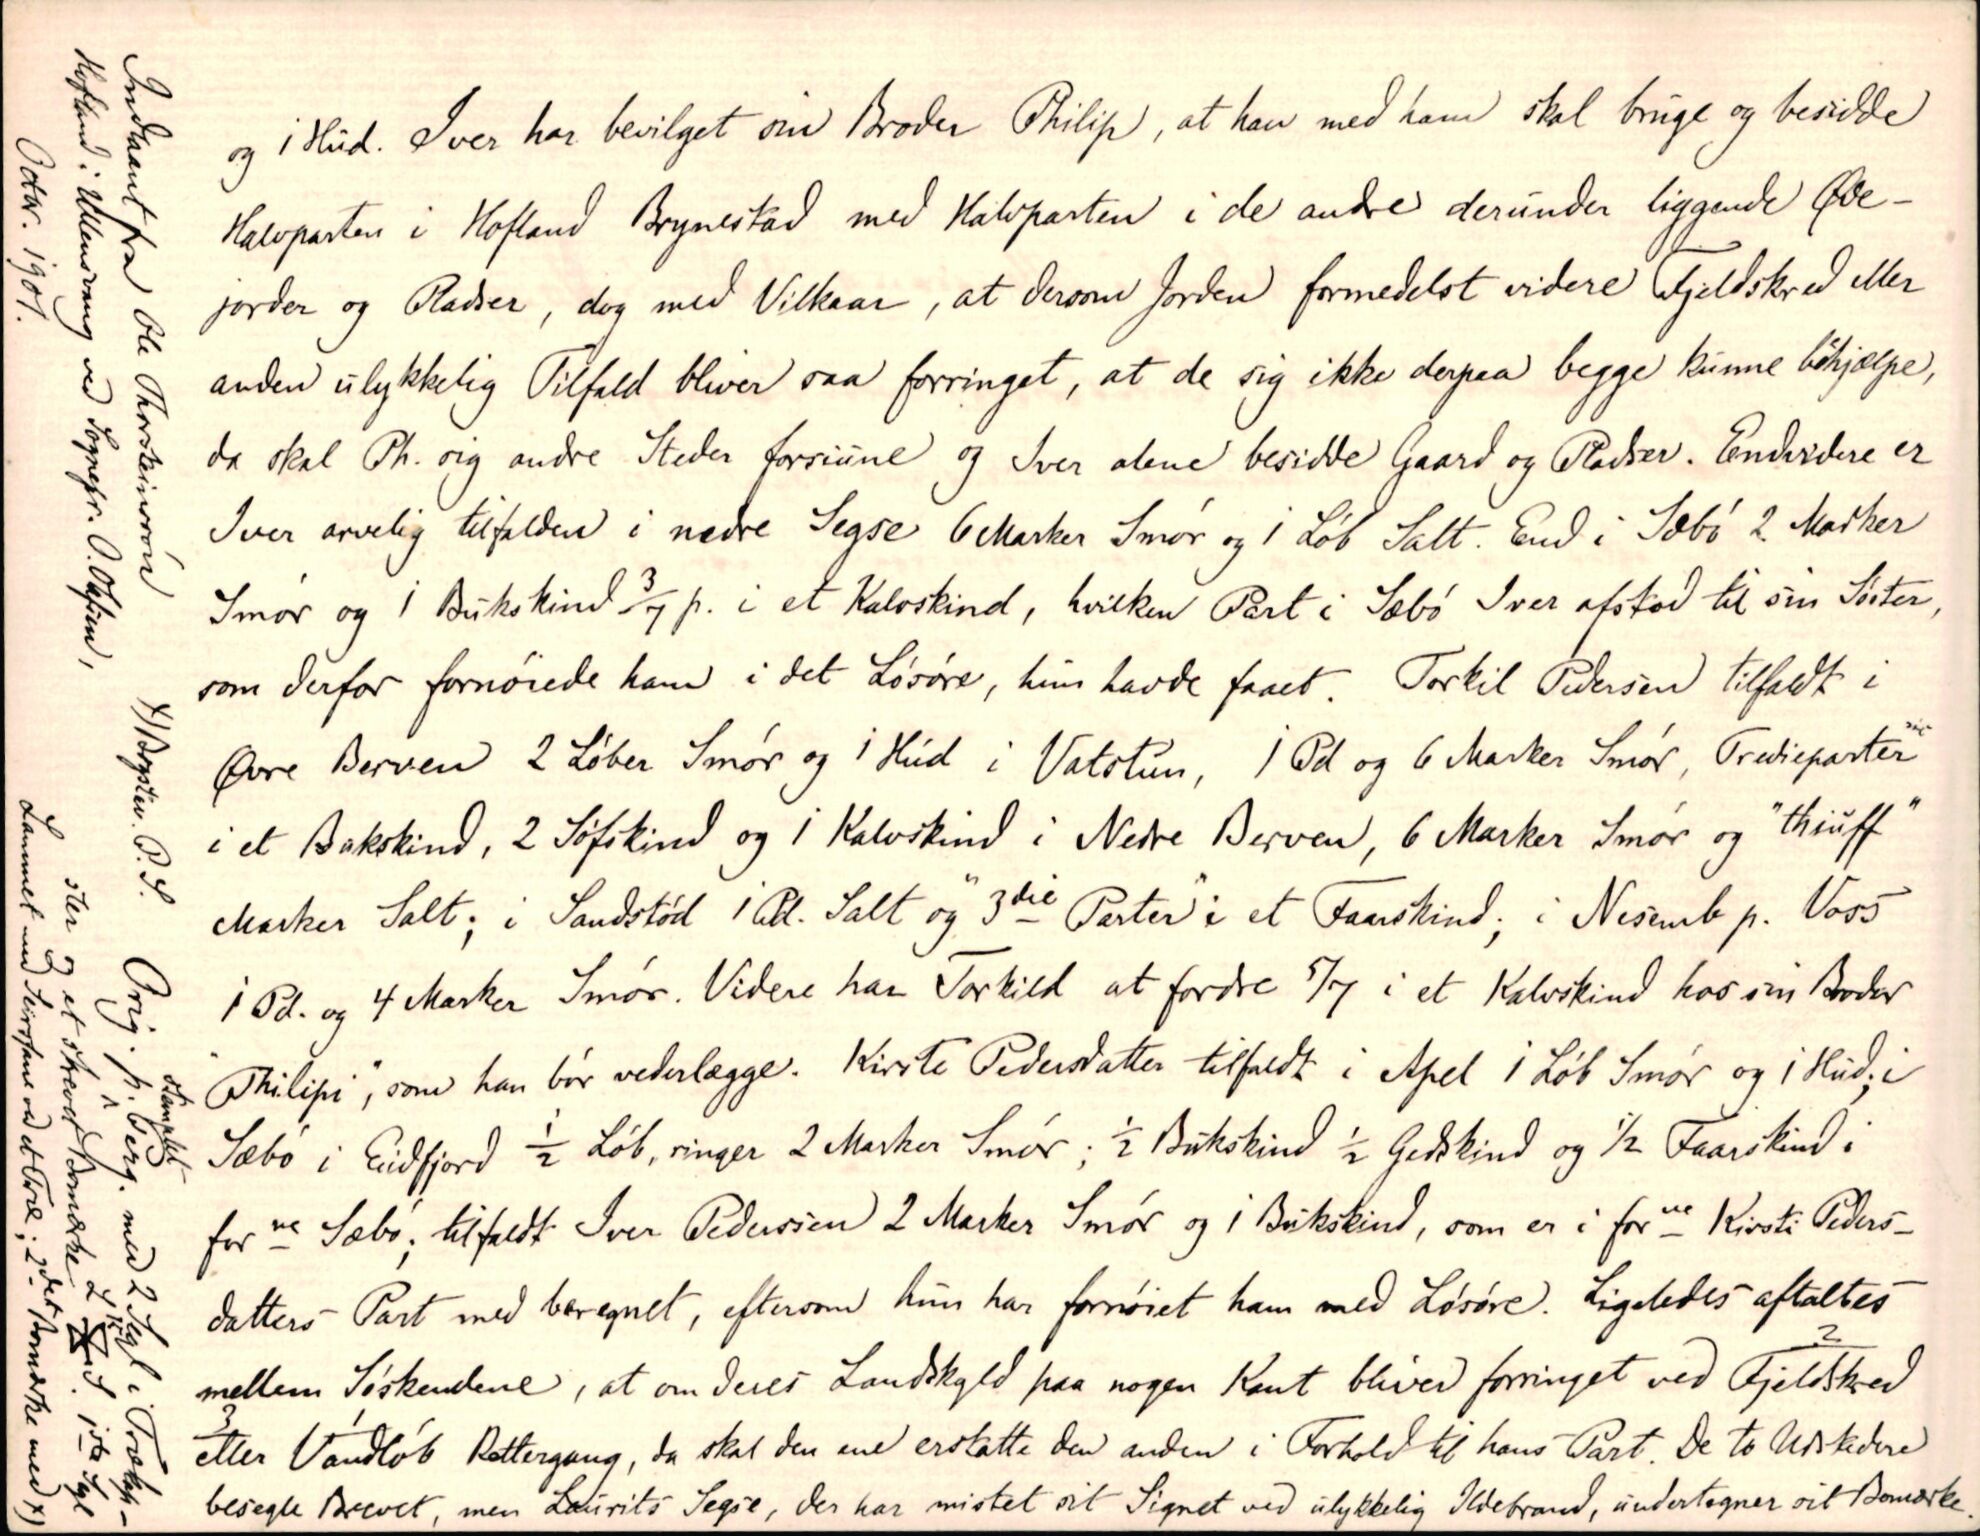 og 1 Hud. Iver har bevilget sin Broder Philip, at han med ham skal bruge og besidde
Halvparten i Hofland Brynestad med Halvparten i de andre derunder liggende Øde-
jorder og Pladser, dog med Vilkaar, at dersom Jorden formedelst videre Fjeldskred eller
anden ulykkelig Tilfald bliver saa forringet, at de sig ikke derpaa begge kunne behjælpe,
da skal Ph. sig andre Steder forsiune og Iver alene besidde Gaard og Pladser. Endvidere er
Iver arvelig tilfalden i nedre Segse 6 Marker Smór og 1 Lób Salt. End i Sæbó 2 Marker
Smór og 1 Bukskind 3/7 p. i et Kalvskind, hvilken Part i Sæbó Iver afstod til sin Sóster,
som derfor fornóiede ham i det Lósóre, hun havde faaet. Torkil Pedersen tilfaldt i
Øvre Berven 2 Lóber Smór og 1 Hud i Vatstun, 1 Pd og 6 Marker Smór, Tredieparter sic
i et Bukskind, 2 Sófskind og 1 Kalvskind i Nedre Berven, 6 Marker Smór og "thiuff"
Marker Salt; i Sandstód 1 Pd. Salt og "3die Parter" i et Faarskind; i Nesemb p. Voss
1 Pd. og 4 Marker Smór. Videre har Torkild at fordre 5/7 i et Kalvskind hos sin Broder
"Philipi", som han bór vederlægge. Kirste Pedersdatter tilfaldt i Apel 1 Lób Smór og 1 Hud; i
Sæbó i Eidfjord 1/2 Lób, ringer 2 Marker Smór; 1/2 Bukskind 1/2 Gedskind og 1/2 Faarskind i
forne Sæbó; tilfaldt Iver Pederssen 2 Marker Smór og 1 Bukskind, som er i forne Kirsti Peders-
datters Part med beregnet, eftersom hun har fornóiet ham med Lósóre. Ligeledes aftaltes
mellem Sóskendene, at om deres Landskyld paa nogen Kant bliver forringet ved Fjeldskred 2
3 eller Vandlób 1 Rettergang, da skal den ene erstatte den anden i Forhold til hans Part. De to Udskedere
besegle Brevet, men Laurits Segse, der har mistet sit Signet ved ulykkelig Ildebrand, undertegner sit Bomærke.
Indsamt fra Ole Thorsteinssón
Hofland i Ullensvang ved Sognepr. O. Olafsen,
Octbr. 1901.
x) Brystbv. P. S.
Orig. p. Perg. med 2 Segl i Træhyl-
stemplet
ster og et skrevet Bomærke L S. 1ste Segl
Lammet med Seirsfane ved et Træ; 2det Bomærke med x)